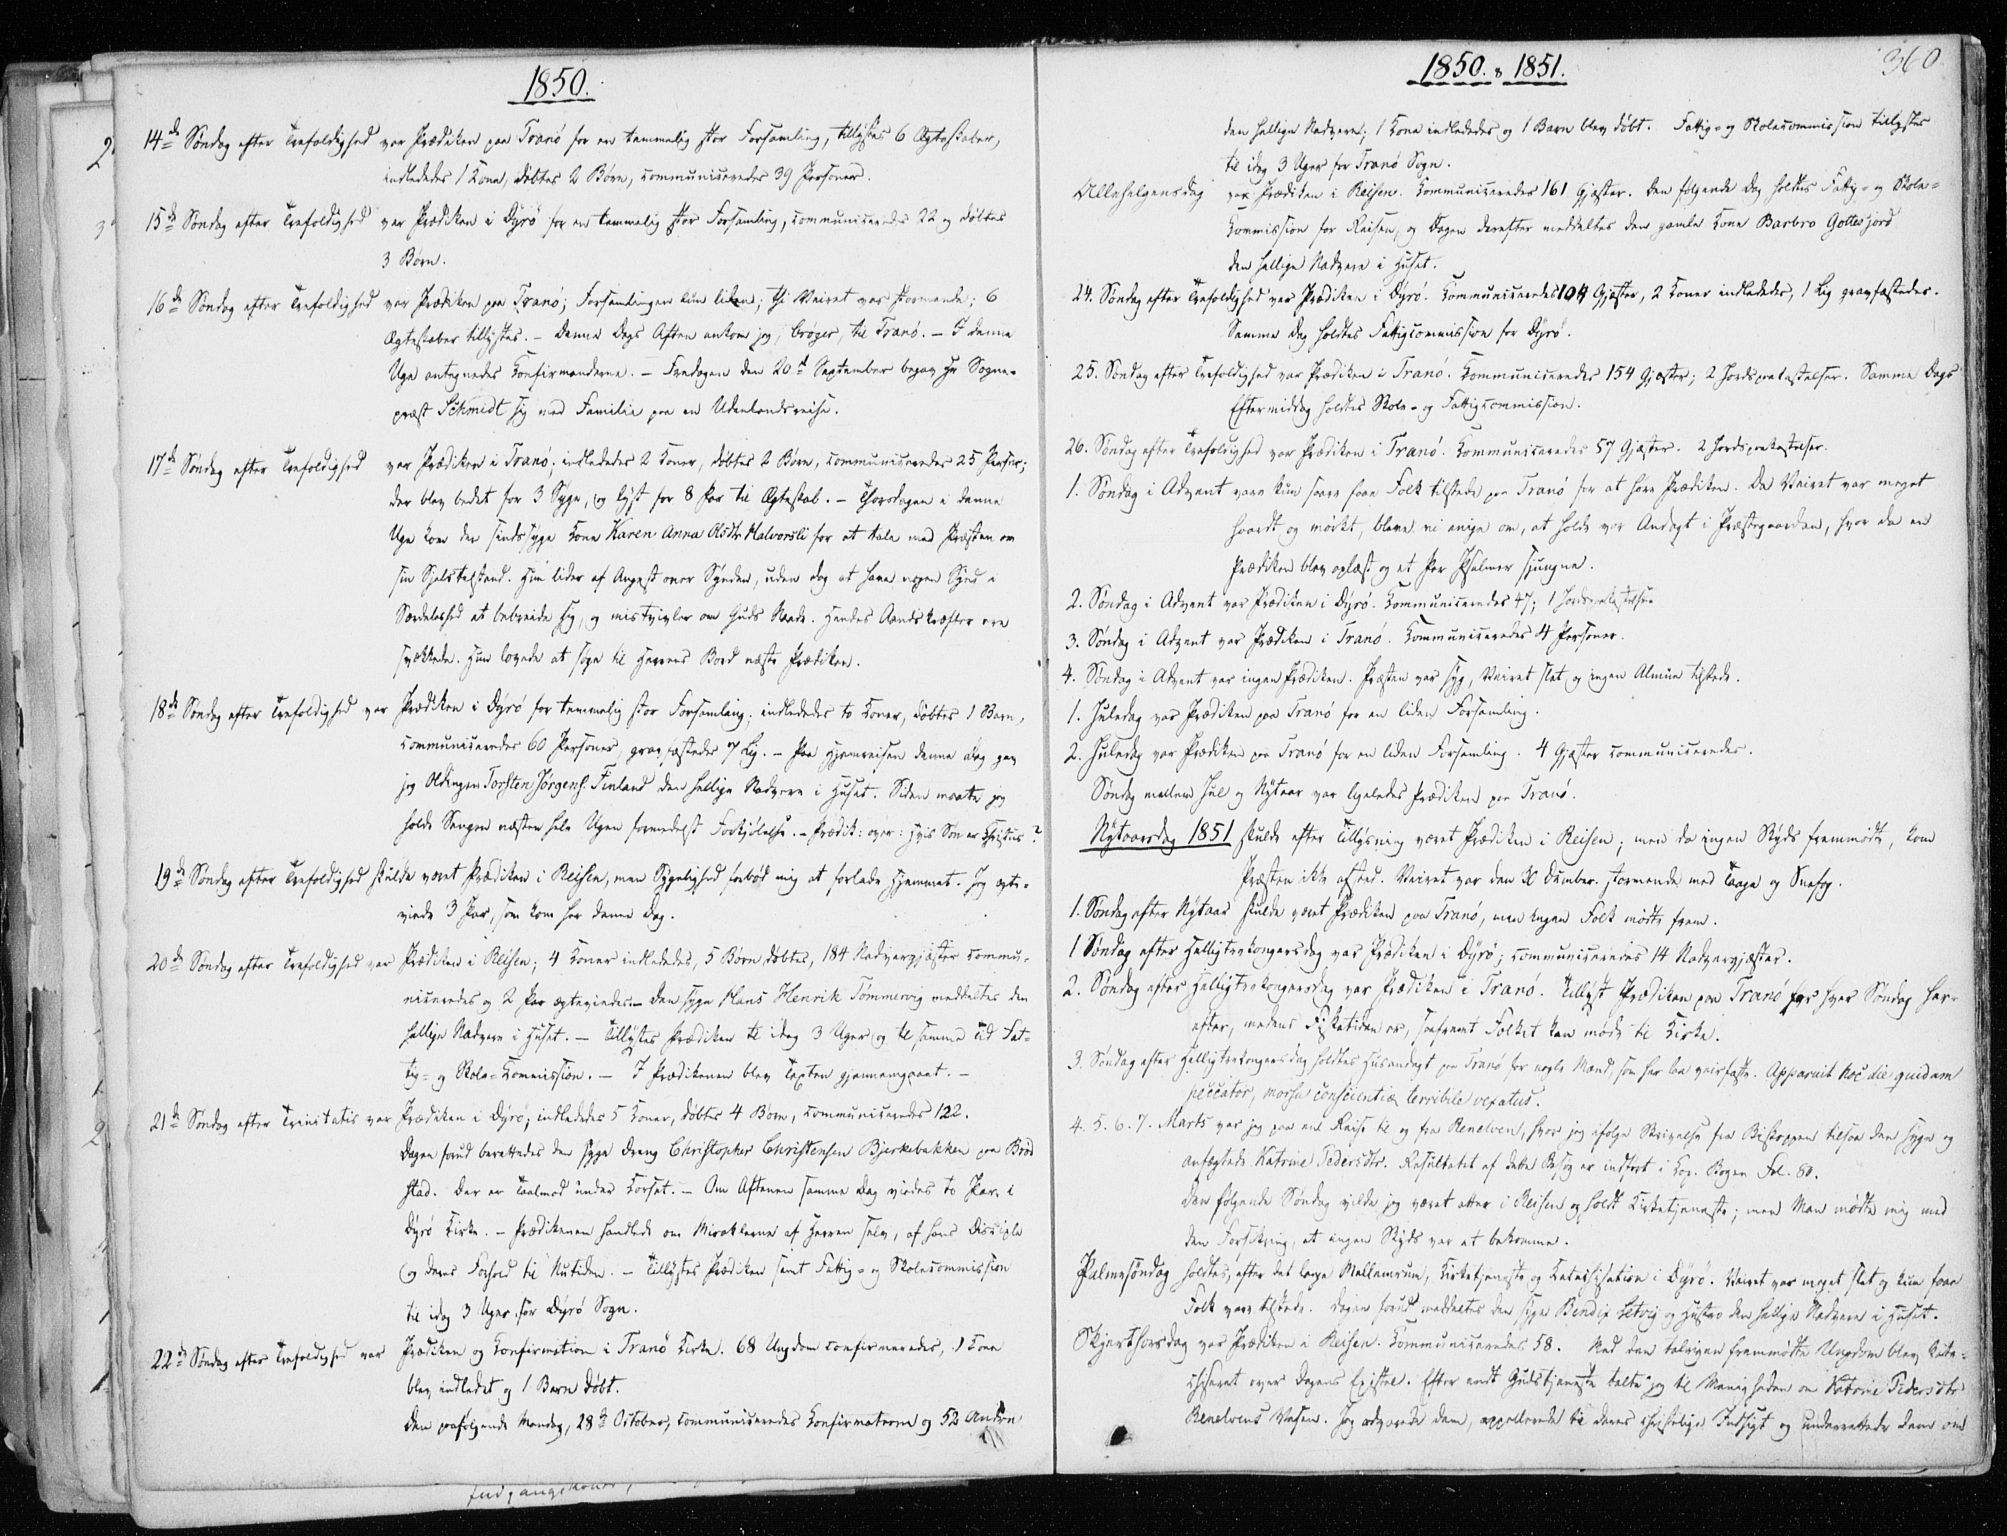 1850.
14de Søndag efter Trefoldighed var Prædiken paa Tranø for en temmelig stor Forsamling, tillystes 6 Ægteskaber,
indlededes 1 Kone, døbtes 2 Børn, communiceredes 39 Personer.
15de Søndag efter Trefoldighed var Prædiken i Dyrø for en temmelig stor Forsamling, communiceredes 22 og døbtes
3 Børn.
16de Søndag efter Trefoldighed var Prædiken paa Tranø; Forsamlingen kun liden; thi Veiret var stormende; 6
Ægteskaber tillystes. – Denne Dags Aften ankom jeg, Crøger, til Tranø. – I denne
Uge antegnedes Konfirmanderne. – Fredagen den 20d September begav Hr Sogne-
præst Schmidt sig med Familie paa en Udenlandsreise.
17de Søndag efter Trefoldighed var Prædiken i Tranø; indlededes 2 Koner, døbtes 2 Børn, communiceredes 25 Personer;
der blev bedet for 3 Syge, og lyst for 8 Par til Ægteskab. – Thorsdagen i denne
Uge kom den sindssyge Kone Karen Anna Olsdtr Halvorsli for at tale med Præsten om
sin Sjelstilstand. Hun lider af Angest over Synden, uden dog at have nogen Synd i
Særdeleshed at bebreide sig, og mistvivler om Guds Naade. Hendes Aandskræfter ere
svækkede. Hun lovede at søge til Herrens Bord næste Prædiken.
18de Søndag efter Trefoldighed var Prædiken i Dyrø for temmelig stor Forsamling; indlededes to Koner, døbtes 1 Barn,
communiceredes 60 Personer, gravfæstedes 7 Lig. – Paa Hjemreisen denne Dag gav
jeg Oldingen Torsten Jørgens. Finland den hellige Nadvere i Huset. Siden maatte jeg
holde Sengen næsten hele Ugen formedelst Forkjølelse. – Prædik: over: Hvis Søn er Christus?
19de Søndag efter Trefoldighed skulde været Prædiken i Reisen, men Sygelighed forbød mig at forlade Hjemmet. Jeg ægte-
viede 3 Par, som kom her denne Dag.
20de Søndag efter Trefoldighed var Prædiken i Reisen; 4 Koner indlededes, 5 Børn døbtes, 184 Nadvergjæster commu-
niceredes og 2 Par ægteviedes. – Den syge Hans Henrik Tømmervig meddeltes den
hellige Nadvere i Huset. – Tillystes Prædiken til idag 3 Uger og til samme Tid Fat-
tig- og Skole-Kommission. – I Prædikenen blev Texten gjennemgaaet. –
21de Søndag efter Trinitatis var Prædiken i Dyrø; indlededes 5 Koner, døbtes 4 Børn, communiceredes 122.
Dagen forud berettedes den syge Dreng Christopher Christensen Bjerkebakken paa Brød
stad. Der er Taalmod under Korset. – Om Aftenen samme Dag viedes to Par i
Dyrø Kirke. – Prædikenen handlede om Miraklerne af Herren selv, af hans Disciple
og deres Forhold til Nutiden. – Tillystes Prædiken samt Fattig- og Skolecommission
til idag 3 Uger for Dyrø Sogn.
22de Søndag efter Trefoldighed var Prædiken og Confirmation i Tranø Kirke. 68 Ungdom confirmeredes, 1 Kone
blev indledet og 1 Barn døbt.
Den paafølgende Mandag, 28de October, communiceredes Konfirmaterne og 52 Andre
1850. & 1851.
360
den hellige Nadvere; 1 Kone indlededes og 1 Barn blev døbt. Fattig- og Skolecommission tillystes
til idag 3 Uger for Tranø Sogn.
Allehelgensdag var Prædiken i Reisen. Kommuniceredes 161 Gjæster. Den følgende Dag holdtes Fattig- og Skole-
Kommission for Reisen, og Dagen derefter meddeltes den gamle Kone Barbro Gollesjord
den hellige Nadvere i Huset.
24. Søndag efter Trefoldighed var Prædiken i Dyrø. Kommuniceredes 104 Gjæster, 2 Koner indlededes, 1 Lig gravfæstedes.
Samme Dag holdtes Fattigcommission for Dyrø.
25. Søndag efter Trefoldighed var Prædiken i Tranø. Kommuniceredes 154 Gjæster; 2 Jordspaakastelser. Samme Dags
Eftermiddag holdtes Skole- og Fattigcommission.
26. Søndag efter Trefoldighed var Prædiken i Tranø. Kommuniceredes 57 Gjæster. 2 Jordspaakastelser.
1. Søndag i Advent vare kun saare faae Folk tilstede paa Tranø for at høre Prædiken. Da Veiret var meget
haardt og mørkt, bleve vi enige om, at holde vor Andagt i Præstegaarden, hvor da en
Prædiken blev oplæst og et Par Psalmer sjungne.
2. Søndag i Advent var Prædiken i Dyrø. Kommuniceredes 47; 1 Jordspaakastelse.
3. Søndag i Advent var Prædiken i Tranø. Kommuniceredes 4 Personer.
4. Søndag i Advent var ingen Prædiken. Præsten var syg, Veiret slet og ingen Almue tilstede.
1. Juledag var Prædiken paa Tranø for en liden Forsamling.
2. Juledag var Prædiken paa Tranø for en liden Forsamling. 4 Gjæster communiceredes.
Søndag mellem Jul og Nytaar var ligeledes Prædiken paa Tranø.
Nytaarsdag 1851 skulde efter Tillysning været Prædiken i Reisen; men da ingen Skyds fremmødte, kom
Præsten ikke afsted. Veiret var den 30 December stormende med Taage og Snefog.
1. Søndag efter Nytaar skulde været Prædiken paa Tranø, men ingen Folk mødte frem.
1 Søndag efter Helligtrekongersdag var Prædiken i Dyrø; communiceredes 14 Nadvergjæster.
2. Søndag efter Helligtrekongersdag var Prædiken i Tranø. Tillyst Prædiken paa Tranø for hver Søndag her-
efter, medens Fisketiden er, saafremt Folket kan møde til Kirke.
3. Søndag efter Helligtrekongersdag holdtes Husandagt paa Tranø for nogle Mænd, som her laae veirfaste. Apparuit hoc die quidam
peccator, morsu conscientiæ terribile vexatus.
4. 5. 6. 7. Marts var jeg paa en Reise til og fra Renelven, hvor jeg ifølge Skrivelse fra Biskoppen tilsaae den syge og
anfægtede Katrine Pedersdtr. Resultatet af dette Besøg er indført i Kop. Bogen Fol. 80.
Den følgende Søndag vilde jeg været atter i Reisen og holdt Kirketjeneste; men Man mødte mig med
den Forsikring, at ingen Skyds var at bekomme.
Palmesøndag holdtes, efter det lange Mellemrum, Kirketjeneste og Katechisation i Dyrø. Veiret var meget slet og kun faae
Folk vare tilstede. Dagen forud meddeltes den syge Bendix Letvig og Hustru den hellige Nadvere i Huset.
Skjærthorsdag var Prædiken i Reisen. Kommuniceredes 58. Med den talrigen fremmødte Ungdom blev kate-
chiseret over Dagens Epistel. Efter endt Gudstjeneste talte jeg til Menigheden om Katrine Pedersdtr
Renelvens Væsen. Jeg advarede dem, appellerede til deres christelige Indsigt og underrettede dem om